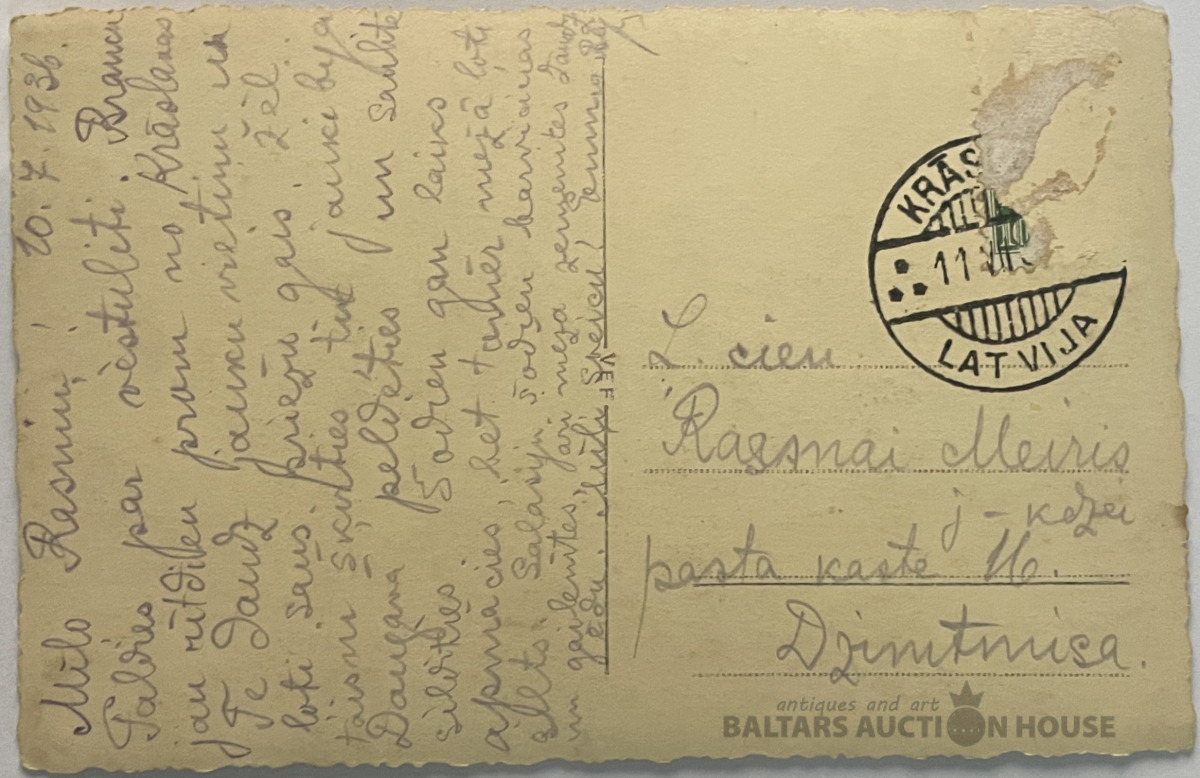 10. 7. 1936.
Mīlo Rasmiņ,
Paldies par vēstulīti. Braucu
jau rītdien prom no Krāslavas
Te daudz jauku vietiņu un
ļoti sauss priežu gais. Žēl
šķirties tik jauki bija
Daugavā peldēties un saulītē
sildīties. Šodien gan laiks
apmācies, bet tomēr mežā ļoti
silts. Salasīju šodien
un gailenītes, arī meža zemenītes daudz
ēdu. Sveicu!
VEF
L. cien.
Rasmai Meiris
j-kdzei
pasta kaste 16.
Dzimtmisa.
KRĀS
11 VII
LATVIJA
10
antiques and art
BALTARS AUCTION HOUSE